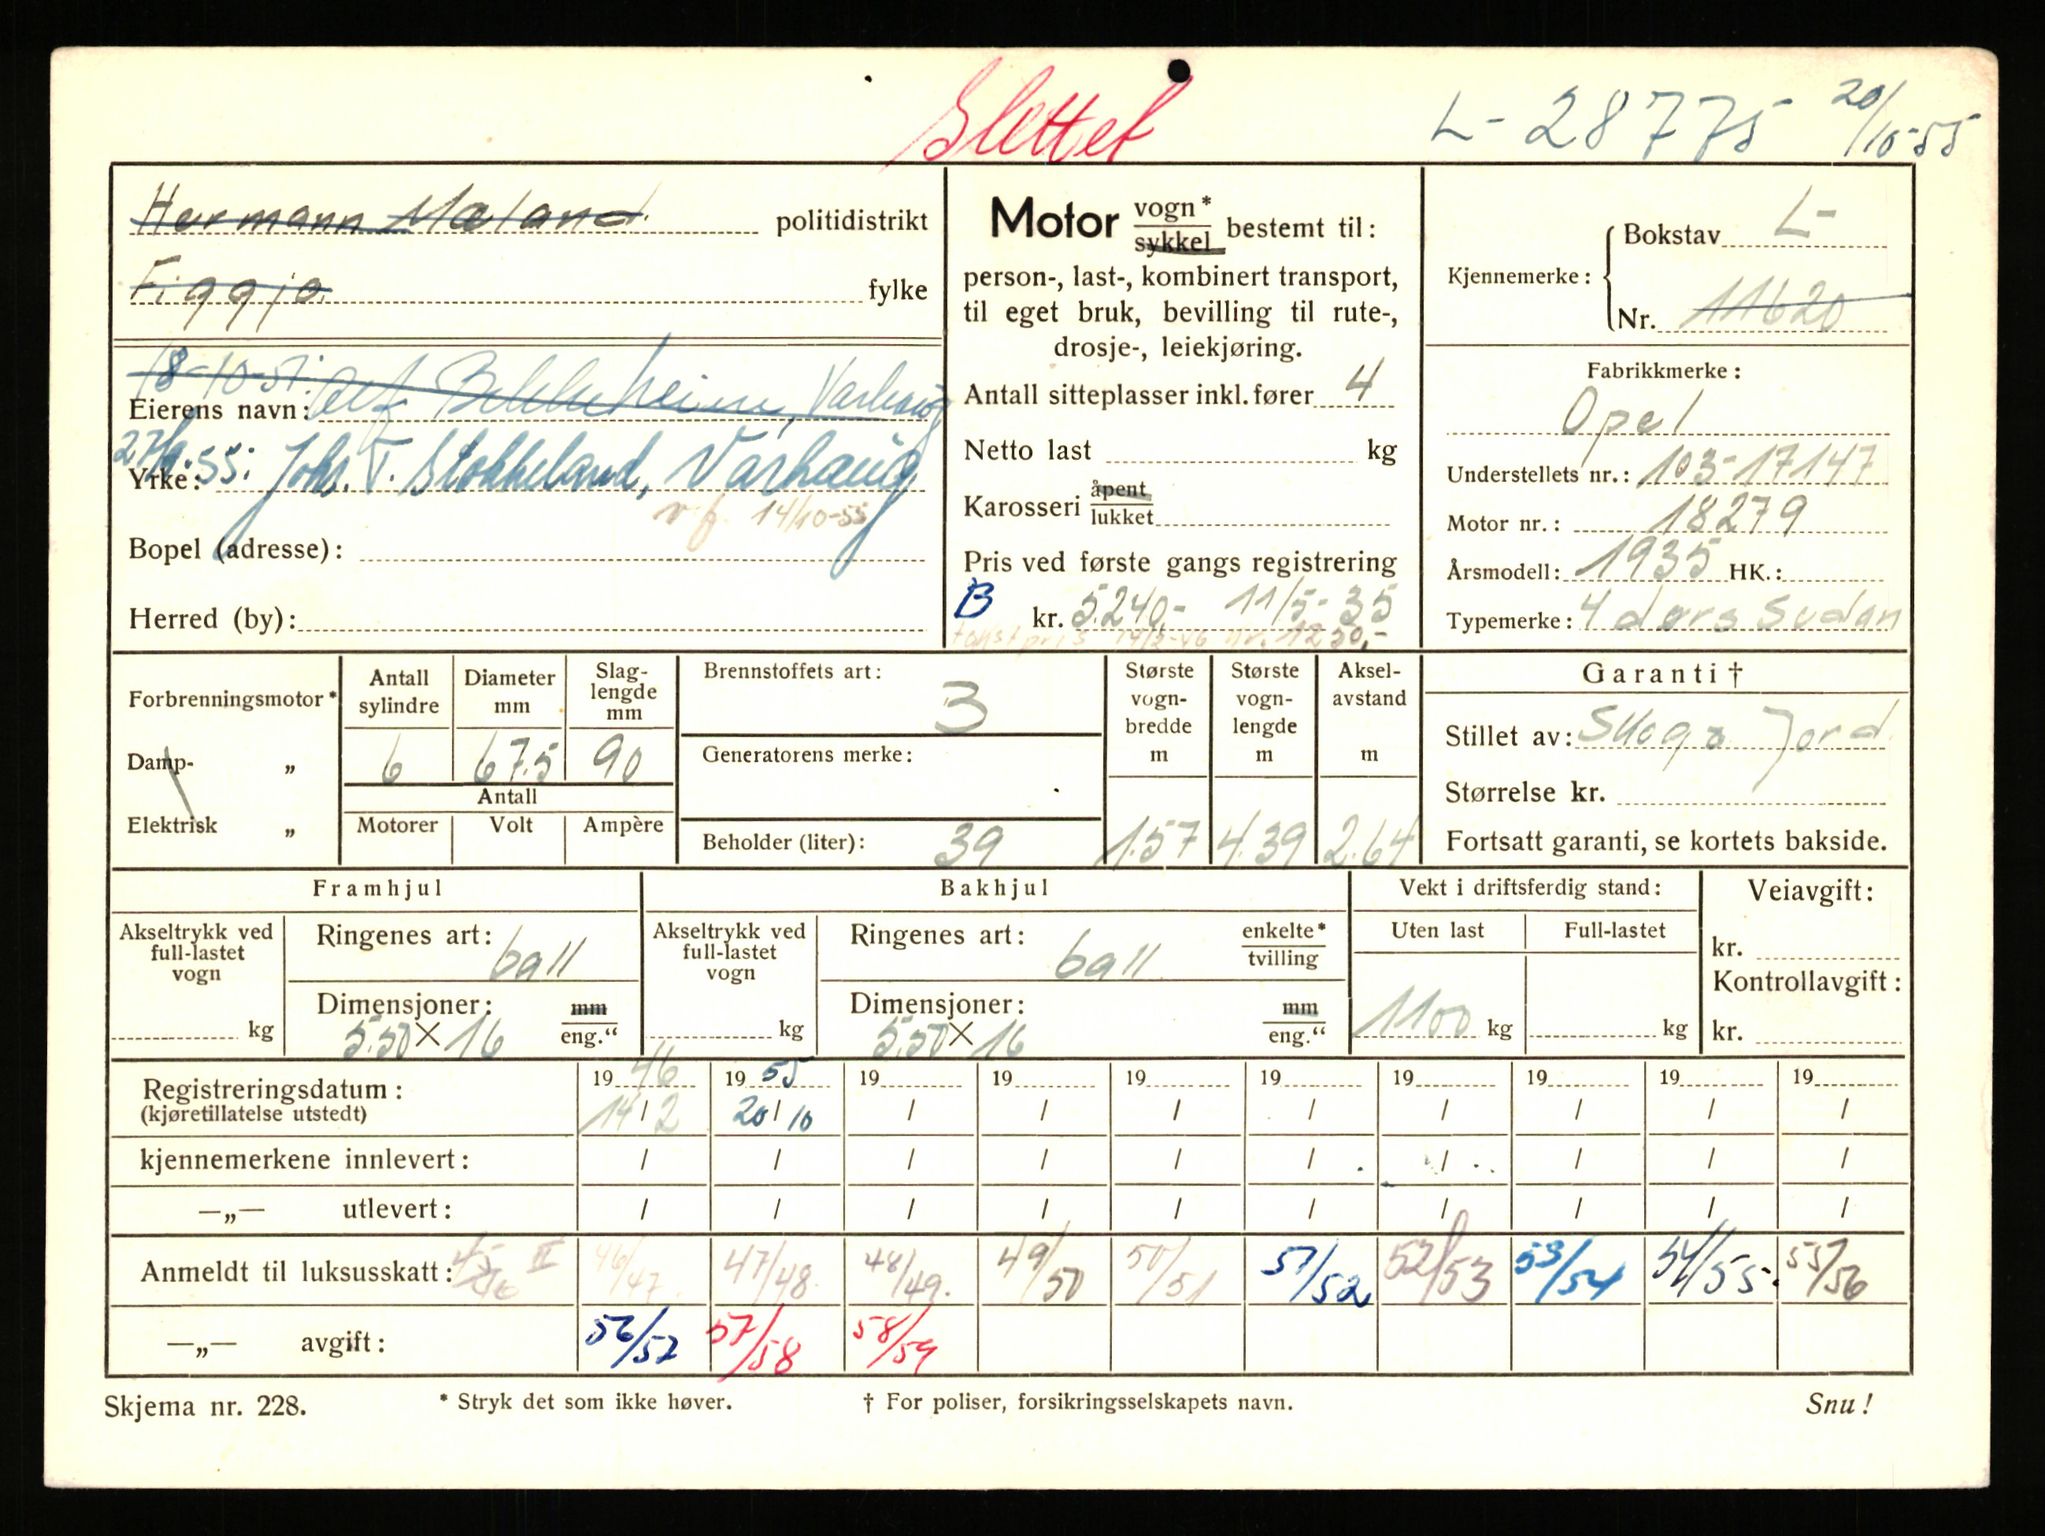 Slettet
L- 28775 20/10-55
Hermann Mæland politidistrikt
Figgjo fylke
18-10-51: Alf Bekkeheien, Varhaug
Eierens navn:
27/9-55: Johs. T. Stokkeland, Varhaug
Yrke:
v.f. 14/10-55
Bopel (adresse):
Herred (by):
Motor vogn* / sykkel bestemt til:
person-, last-, kombinert transport,
til eget bruk, bevilling til rute-,
drosje-, leiekjøring.
Antall sitteplasser inkl. fører 4
Netto last kg
Karosseri åpent / lukket
Pris ved første gangs registrering
B kr. 5240,- 11/5-35
takstpris 14/2-46 kr. 1250,-
Kjennemerke: Bokstav L-
Nr. 11620
Fabrikkmerke:
Opel
Understellets nr.: 103-17147
Motor nr.: 18279
Årsmodell: 1935 HK.:
Typemerke: 4 dørs Sedan
Forbrenningsmotor*
Damp- „
Elektrisk „
Antall sylindre 6
Diameter mm 67.5
Slag-lengde mm 90
Antall
Motorer Volt Ampère
Brennstoffets art: B
Generatorens merke:
Beholder (liter): 39
Største vogn-bredde m 1.57
Største vogn-lengde m 4.39
Aksel-avstand m 2.64
Garanti †
Stillet av: Skog & Jord
Størrelse kr.
Fortsatt garanti, se kortets bakside.
Framhjul
Akseltrykk ved full-lastet vogn kg
Ringenes art: ball
Dimensjoner: mm / eng.“
5.50 × 16
Bakhjul
Akseltrykk ved full-lastet vogn kg
Ringenes art: ball enkelte* / tvilling
Dimensjoner: mm / eng.“
5.50 × 16
Vekt i driftsferdig stand:
Uten last Full-lastet
1100 kg kg
Veiavgift:
kr.
Kontrollavgift:
kr.
Registreringsdatum: 19 46 19 55 19 19 19 19 19 19 19 19
(kjøretillatelse utstedt) 14/2 20/10 / / / / / / / /
kjennemerkene innlevert: / / / / / / / / / /
—„— utlevert: / / / / / / / / / /
Anmeldt til luksusskatt: 45/46 II 46/47. 47/48. 48/49. 49/50 50/51 51/52 52/53 53/54 54/55. 55/56
—„— avgift: 56/57 57/58 58/59
Skjema nr. 228. * Stryk det som ikke høver. † For poliser, forsikringsselskapets navn. Snu!